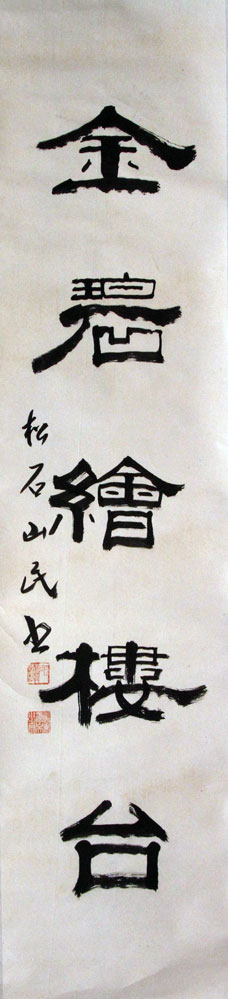 金碧繪樓台
松石山民書